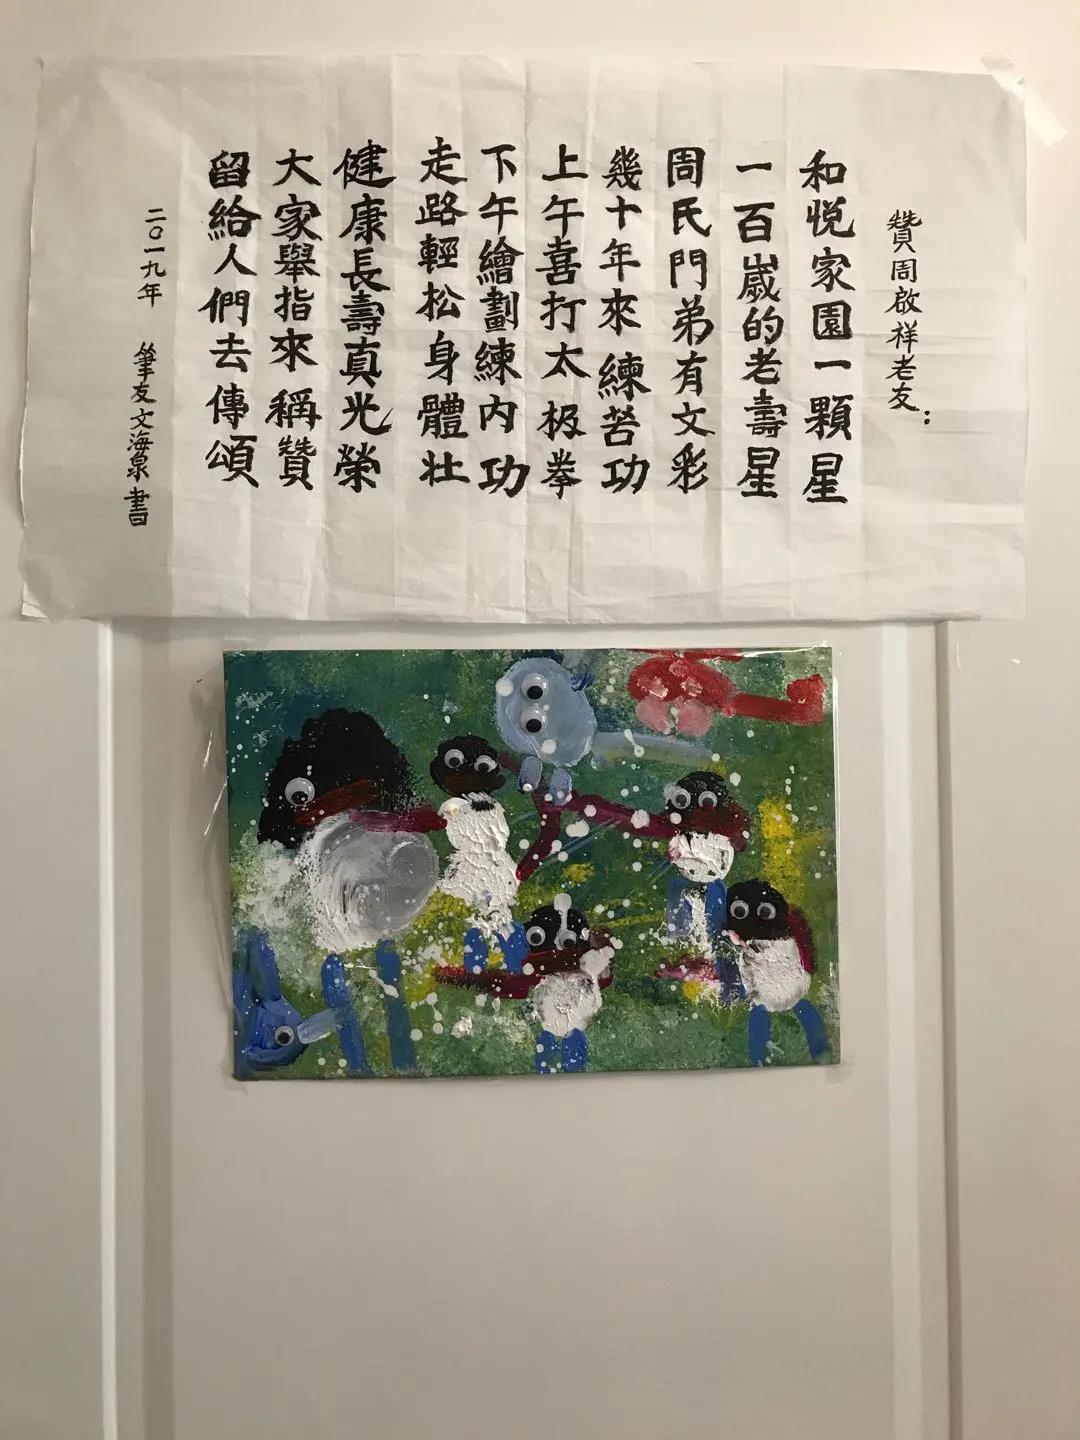 贊周啟祥老友：
和悅家園一顆星
一百嵗的老壽星
周氏門弟有文彩
幾十年來練苦功
上午喜打太极拳
下午繪劃練内功
走路輕松身體壮
健康長壽真光榮
大家舉指來稱贊
留給人們去傳頌
二〇一九年 筆友文海泉書